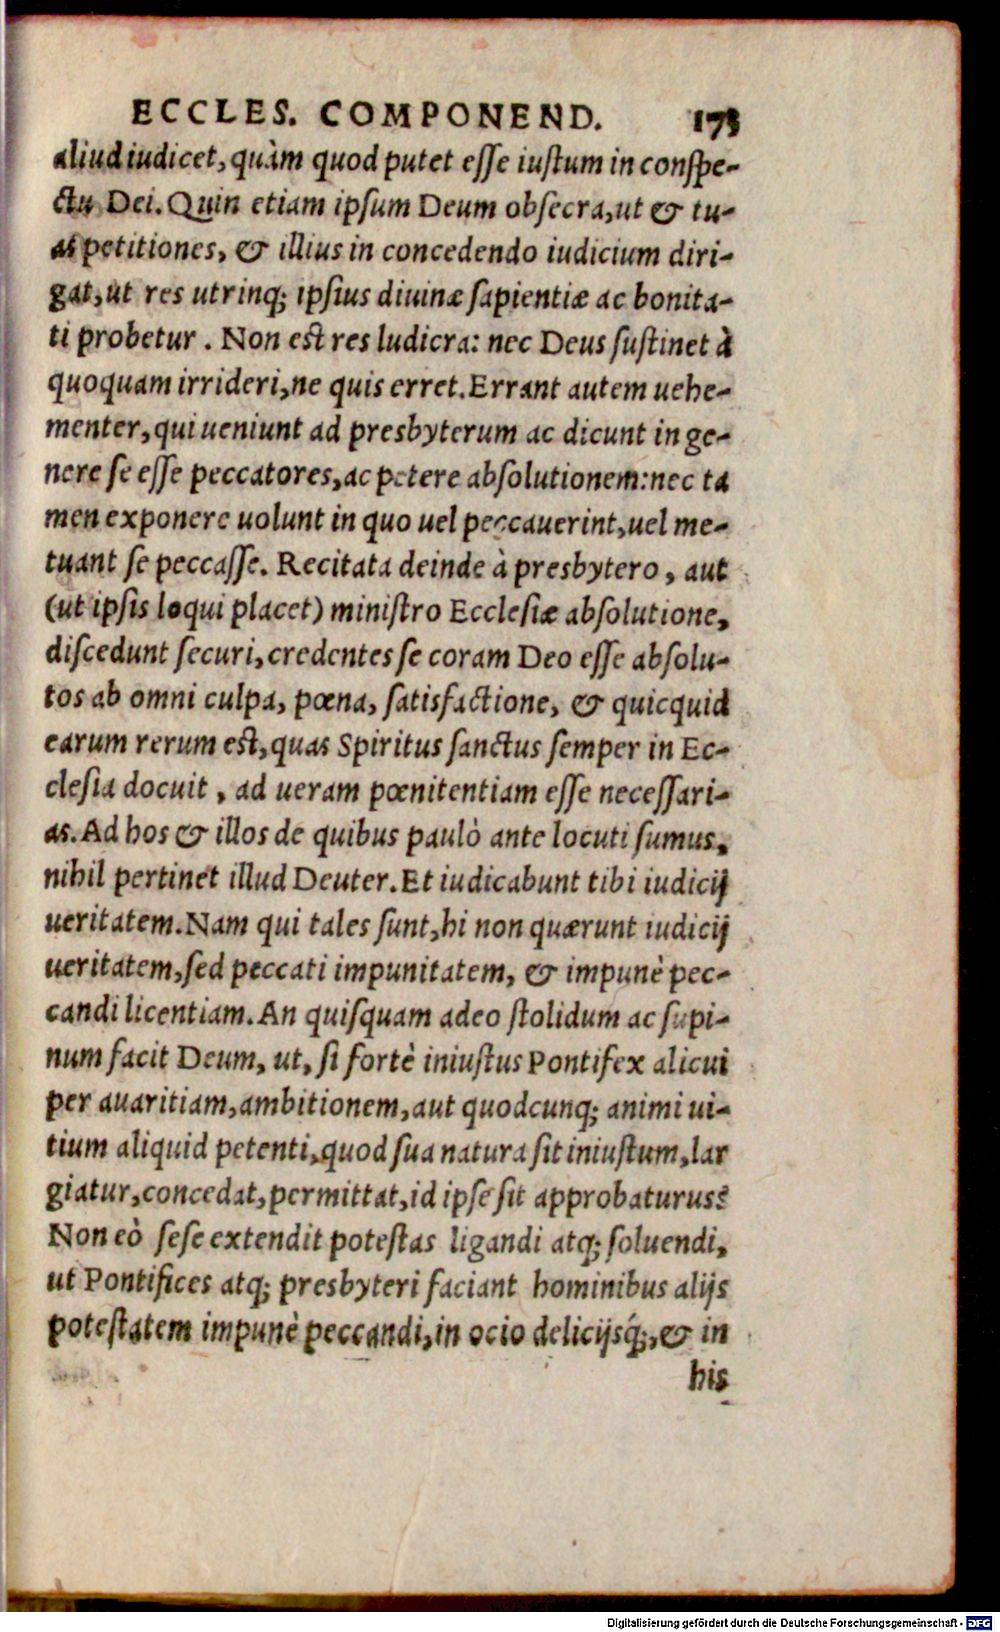 ECCLES. COMPONEND. 173
aliud iudicet, quàm quod putet esse iustum in conspe-
ctu Dei. Quin etiam ipsum Deum obsecra, ut & tu-
as petitiones, & illius in concedendo iudicium diri-
gat, ut res utrinq; ipsius diuinæ sapientiæ ac bonita-
ti probetur. Non est res ludicra: nec Deus sustinet à
quoquam irrideri, ne quis erret. Errant autem uehe-
menter, qui ueniunt ad presbyterum ac dicunt in ge-
nere se esse peccatores, ac petere absolutionem: nec ta
men exponere uolunt in quo uel peccauerint, uel me-
tuant se peccasse. Recitata deinde à presbytero, aut
(ut ipsis loqui placet) ministro Ecclesiæ absolutione,
discedunt securi, credentes se coram Deo esse absolu-
tos ab omni culpa, pœna, satisfactione, & quicquid
earum rerum est, quas Spiritus sanctus semper in Ec-
clesia docuit, ad ueram pœnitentiam esse necessari-
as. Ad hos & illos de quibus paulò ante locuti sumus,
nihil pertinet illud Deuter. Et iudicabunt tibi iudicij
ueritatem. Nam qui tales sunt, hi non quærunt iudicij
ueritatem, sed peccati impunitatem, & impunè pec-
candi licentiam. An quisquam adeo stolidum ac supi-
num facit Deum, ut, si fortè iniustus Pontifex alicui
per auaritiam, ambitionem, aut quodcunq; animi ui-
tium aliquid petenti, quod sua natura sit iniustum, lar
giatur, concedat, permittat, id ipse sit approbaturus?
Non eò sese extendit potestas ligandi atq; soluendi,
ut Pontifices atq; presbyteri faciant hominibus alijs
potestatem impunè peccandi, in ocio delicijsq́;, & in
his
Digitalisierung gefördert durch die Deutsche Forschungsgemeinschaft - DFG